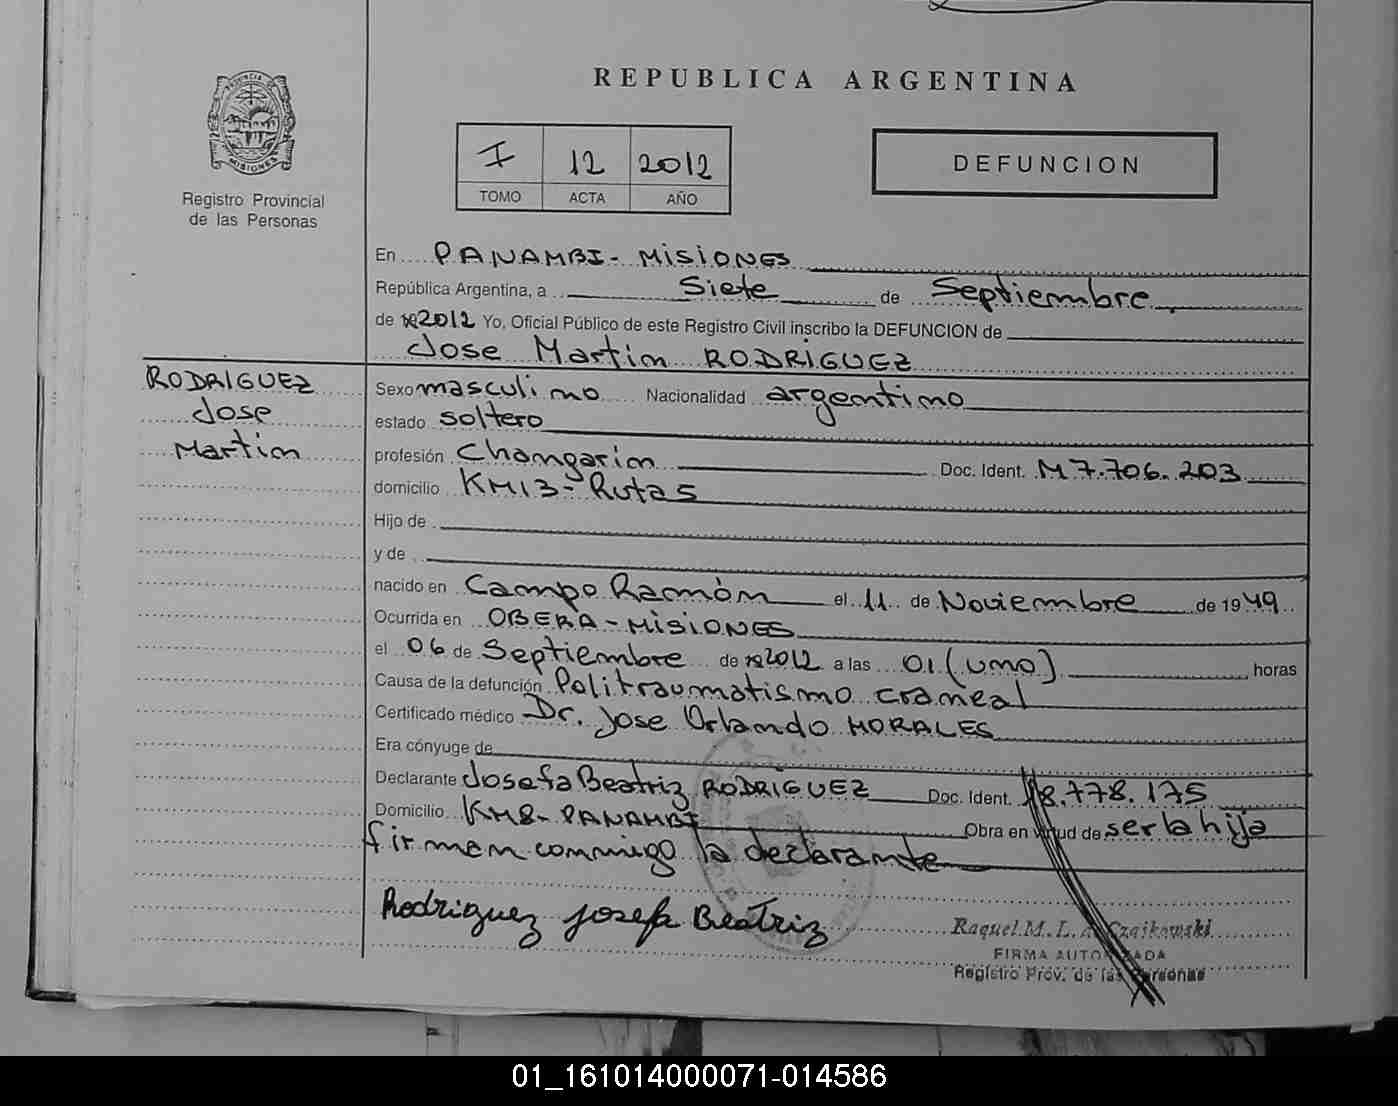 REPUBLICA ARGENTINA
PROVINCIA DE
MISIONES
Registro Provincial
de las Personas
I 12 2012
TOMO ACTA AÑO
DEFUNCION
En PANAMBI - MISIONES
República Argentina, a Siete de Septiembre
de 2012 Yo, Oficial Público de este Registro Civil inscribo la DEFUNCION de
Jose Martin RODRIGUEZ
RODRIGUEZ
Jose
Martin
Sexo masculino Nacionalidad argentino
estado soltero
profesión Changarin Doc. Ident. M 7.706.203
domicilio KM13 - Ruta 5
Hijo de
y de
nacido en Campo Ramón el 11 de Noviembre de 1949
Ocurrida en OBERA - MISIONES
el 06 de Septiembre de 2012 a las 01 (uno) horas
Causa de la defunción Politraumatismo craneal
Certificado médico Dr. Jose Orlando MORALES
Era cónyuge de
Declarante Josefa Beatriz RODRIGUEZ Doc. Ident. 18.778.175
Domicilio KM8 - PANAMBI Obra en virtud de ser la hija
firman conmigo la declarante
Rodriguez Josefa Beatriz
Raquel M. L. A. Czajkowski
FIRMA AUTORIZADA
Registro Prov. de las Personas
01_161014000071-014586